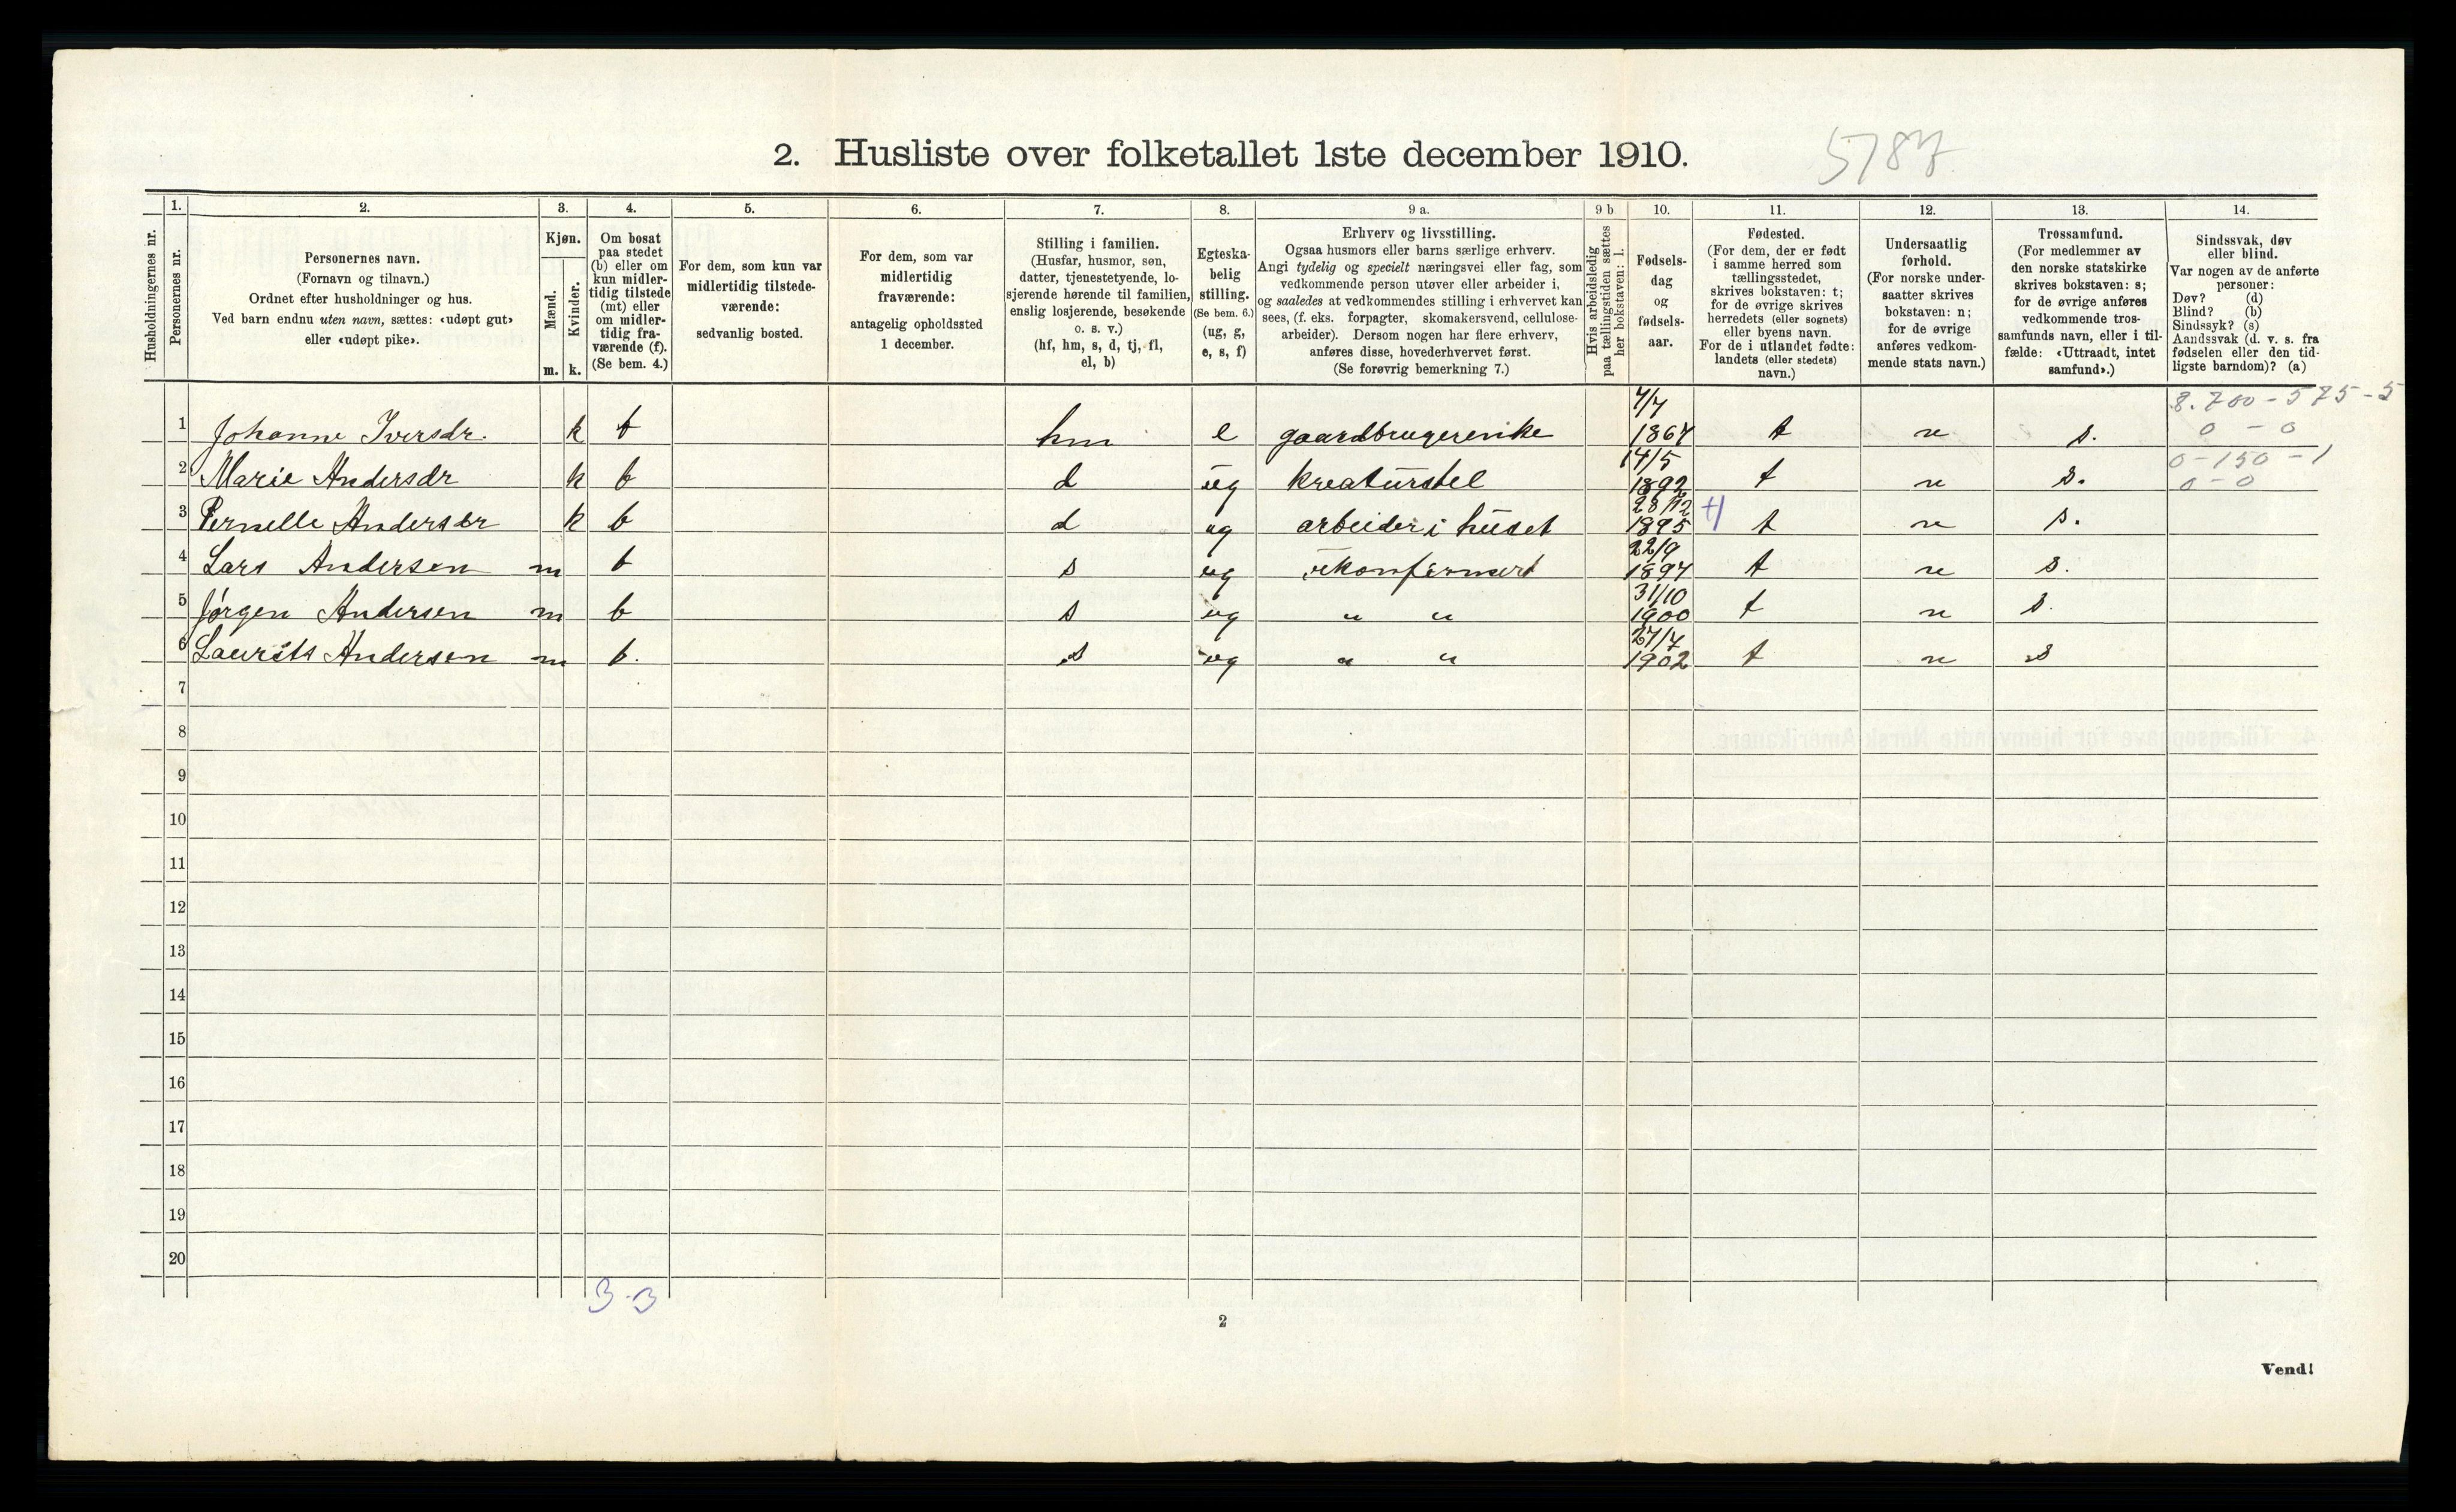 2. Husliste over folketallet 1ste december 1910.
5787
Husholdningernes nr.
1.
Personernes nr.
2.
Personernes navn.
(Fornavn og tilnavn.)
Ordnet efter husholdninger og hus.
Ved barn endnu uten navn, sættes: «udøpt gut»
eller «udøpt pike».
3.
Kjøn.
Mænd.
Kvinder.
m. k.
4.
Om bosat
paa stedet
(b) eller om
kun midler-
tidig tilstede
(mt) eller
om midler-
tidig fra-
værende (f).
(Se bem. 4.)
5.
For dem, som kun var
midlertidig tilstede-
værende:
sedvanlig bosted.
6.
For dem, som var
midlertidig
fraværende:
antagelig opholdssted
1 december.
7.
Stilling i familien.
(Husfar, husmor, søn,
datter, tjenestetyende, lo-
sjerende hørende til familien,
enslig losjerende, besøkende
o. s. v.)
(hf, hm, s, d, tj, fl,
el, b)
8.
Egteska-
belig
stilling.
(Se bem. 6.)
(ug, g,
e, s, f)
9 a.
Erhverv og livsstilling.
Ogsaa husmors eller barns særlige erhverv.
Angi tydelig og specielt næringsvei eller fag, som
vedkommende person utøver eller arbeider i,
og saaledes at vedkommendes stilling i erhvervet kan
sees, (f. eks. forpagter, skomakersvend, cellulose-
arbeider). Dersom nogen har flere erhverv,
anføres disse, hovederhvervet først.
(Se forøvrig bemerkning 7.)
9 b
Hvis arbeidsledig
paa tællingstiden sættes
her bokstaven: l.
10.
Fødsels-
dag
og
fødsels-
aar.
11.
Fødested.
(For dem, der er født
i samme herred som
tællingsstedet,
skrives bokstaven: t;
for de øvrige skrives
herredets (eller sognets)
eller byens navn.
For de i utlandet fødte:
landets (eller stedets)
navn.)
12.
Undersaatlig
forhold.
(For norske under-
saatter skrives
bokstaven: n;
for de øvrige
anføres vedkom-
mende stats navn.)
13.
Trossamfund.
(For medlemmer av
den norske statskirke
skrives bokstaven: s;
for de øvrige anføres
vedkommende tros-
samfunds navn, eller i til-
fælde: «Uttraadt, intet
samfund».)
14.
Sindssvak, døv
eller blind.
Var nogen av de anførte
personer:
Døv? (d)
Blind? (b)
Sindssyk? (s)
Aandssvak (d. v. s. fra
fødselen eller den tid-
ligste barndom)? (a)
8.700 - 575 - 5
0 - 0
1 Johanne Iversdr. k b hm e gaardbrugerenke 4/7 1867 t n s.
0-150 - 1
0 - 0
2 Marie Andersdr k b d ug kreaturstel 14/5 1892 t n s.
3 Pernelle Andersdr k b d ug arbeider i huset 28/12 1895 t n s.
4 Lars Andersen m b s ug ukonfirmert 22/9 1897 t n s.
5 Jørgen Andersen m b s ug " " 31/10 1900 t n s.
6 Laurits Andersen m b. s ug " " 27/7 1902 t n s
7
8
9
10
11
12
13
14
15
16
17
18
19
20
3-3
2
Vend!